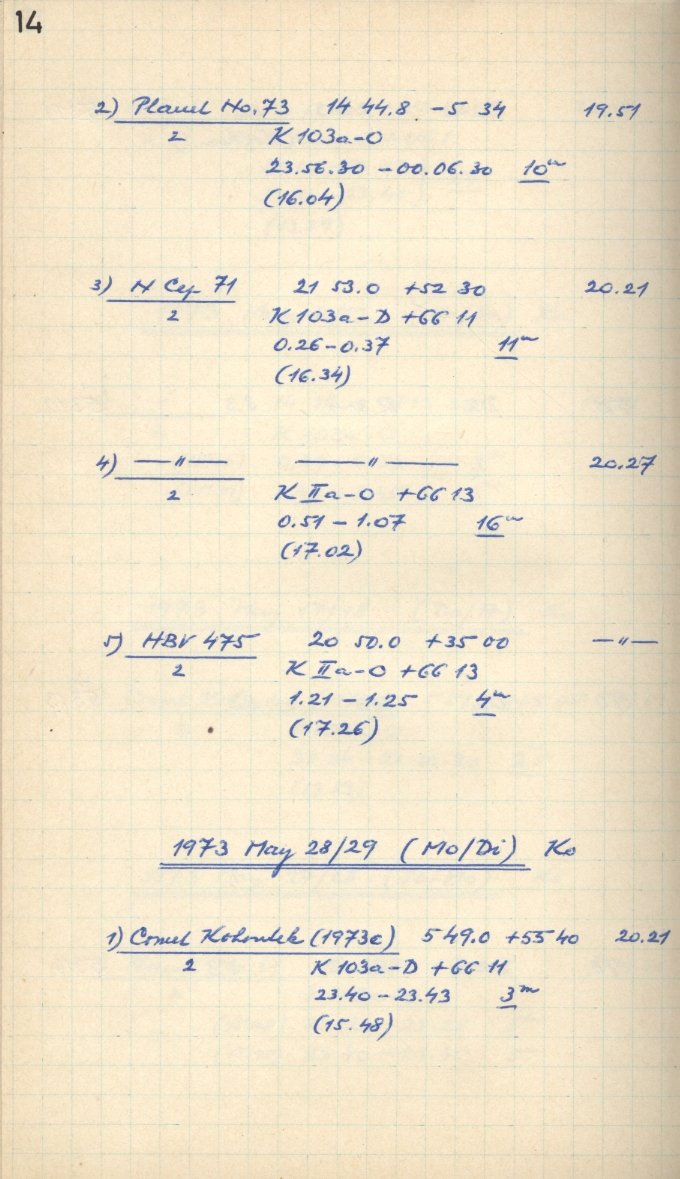 14
2) Planet No. 73 14 44.8 -5 34 19.51
2 K 103a-O
23.56.30 - 00.06.30 10m
(16.04)
3) N Cep 71 21 53.0 +52 30 20.21
2 K 103a-D +GG 11
0.26 - 0.37 11m
(16.34)
4) —"— —"— 20.27
2 K IIa-O +GG 13
0.51 - 1.07 16m
(17.02)
5) HBV 475 20 50.0 +35 00 —"—
2 K IIa-O +GG 13
1.21 - 1.25 4m
(17.26)
1973 May 28/29 (Mo/Di) Ko
1) Comet Kohoutek (1973e) 5 49.0 +55 40 20.21
2 K 103a-D +GG 11
23.40 - 23.43 3m
(15.48)